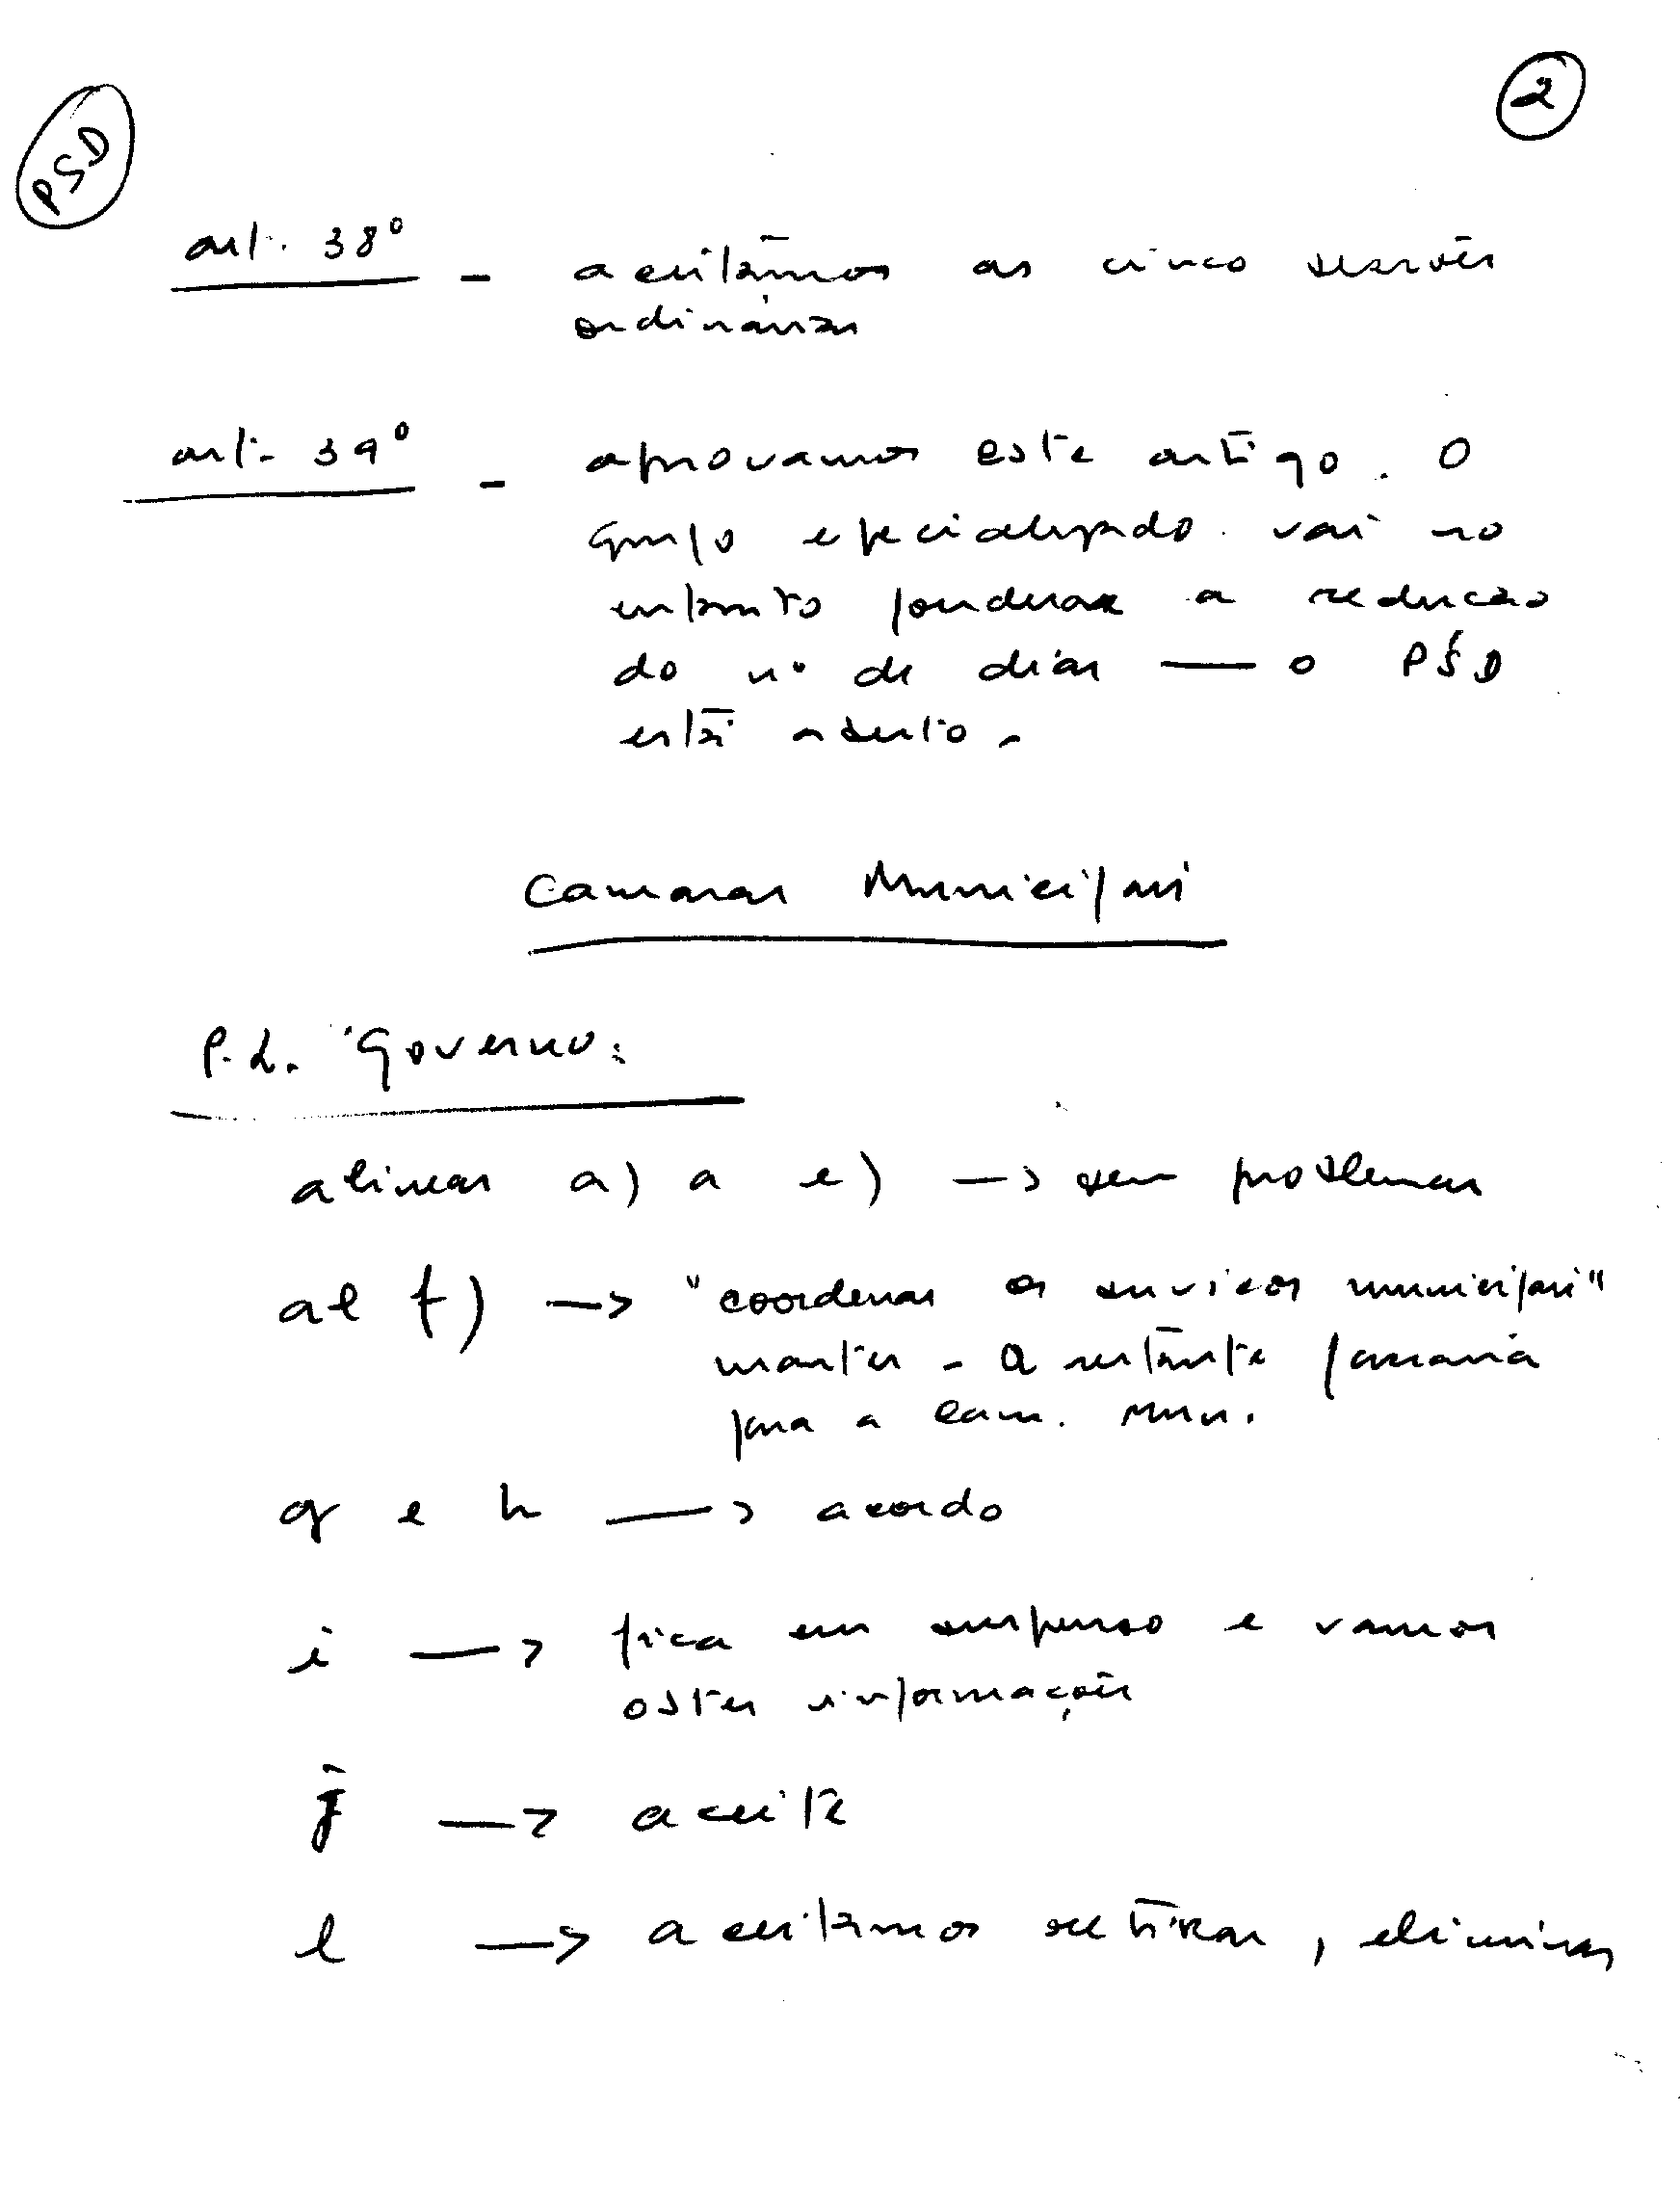 PSD
2
art. 38º - aceitamos as cinco sessões
ordinárias
art. 39º - aprovamos este artigo. O
Grupo especializado vai no
entanto ponderar a redução
do nº de dias — o PSD
está aberto.
Camaras Municipais
P.L. Governo:
alineas a) a e) → sem problemas
al f) → "coordenar os serviços municipais"
manter - a restante passaria
para a Cam. Mun.
g e h → acordo
i → fica em suspenso e vamos
obter informações
j → aceite
l → aceitamos retirar, eliminar